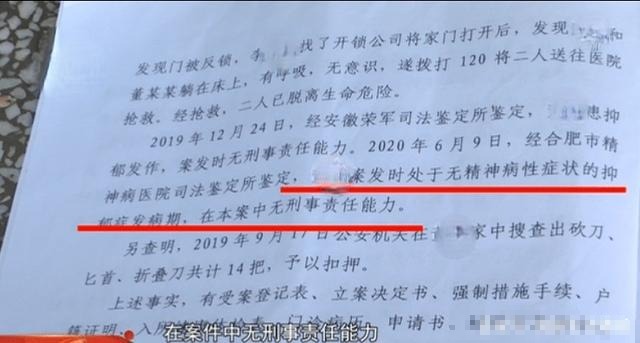 发现门被反锁，李 找了开锁公司将家门打开后，发现 和
董某某躺在床上，有呼吸，无意识，遂拨打 120 将二人送往医院
抢救。经抢救，二人已脱离生命危险。
2019 年 12 月 24 日，经安徽荣军司法鉴定所鉴定， 患抑
郁发作，案发时无刑事责任能力。2020 年 6 月 9 日，经合肥市精
神病医院司法鉴定所鉴定， 案发时处于无精神病性症状的抑
郁症发病期，在本案中无刑事责任能力。
另查明，2019 年 9 月 17 日公安机关在 家中搜查出砍刀、
匕首、折叠刀共计 14 把，予以扣押。
上述事实，有受案登记表、立案决定书、强制措施手续、户
籍证明、入所 检查表、门诊病历、申请书、
在案件中无刑事责任能力